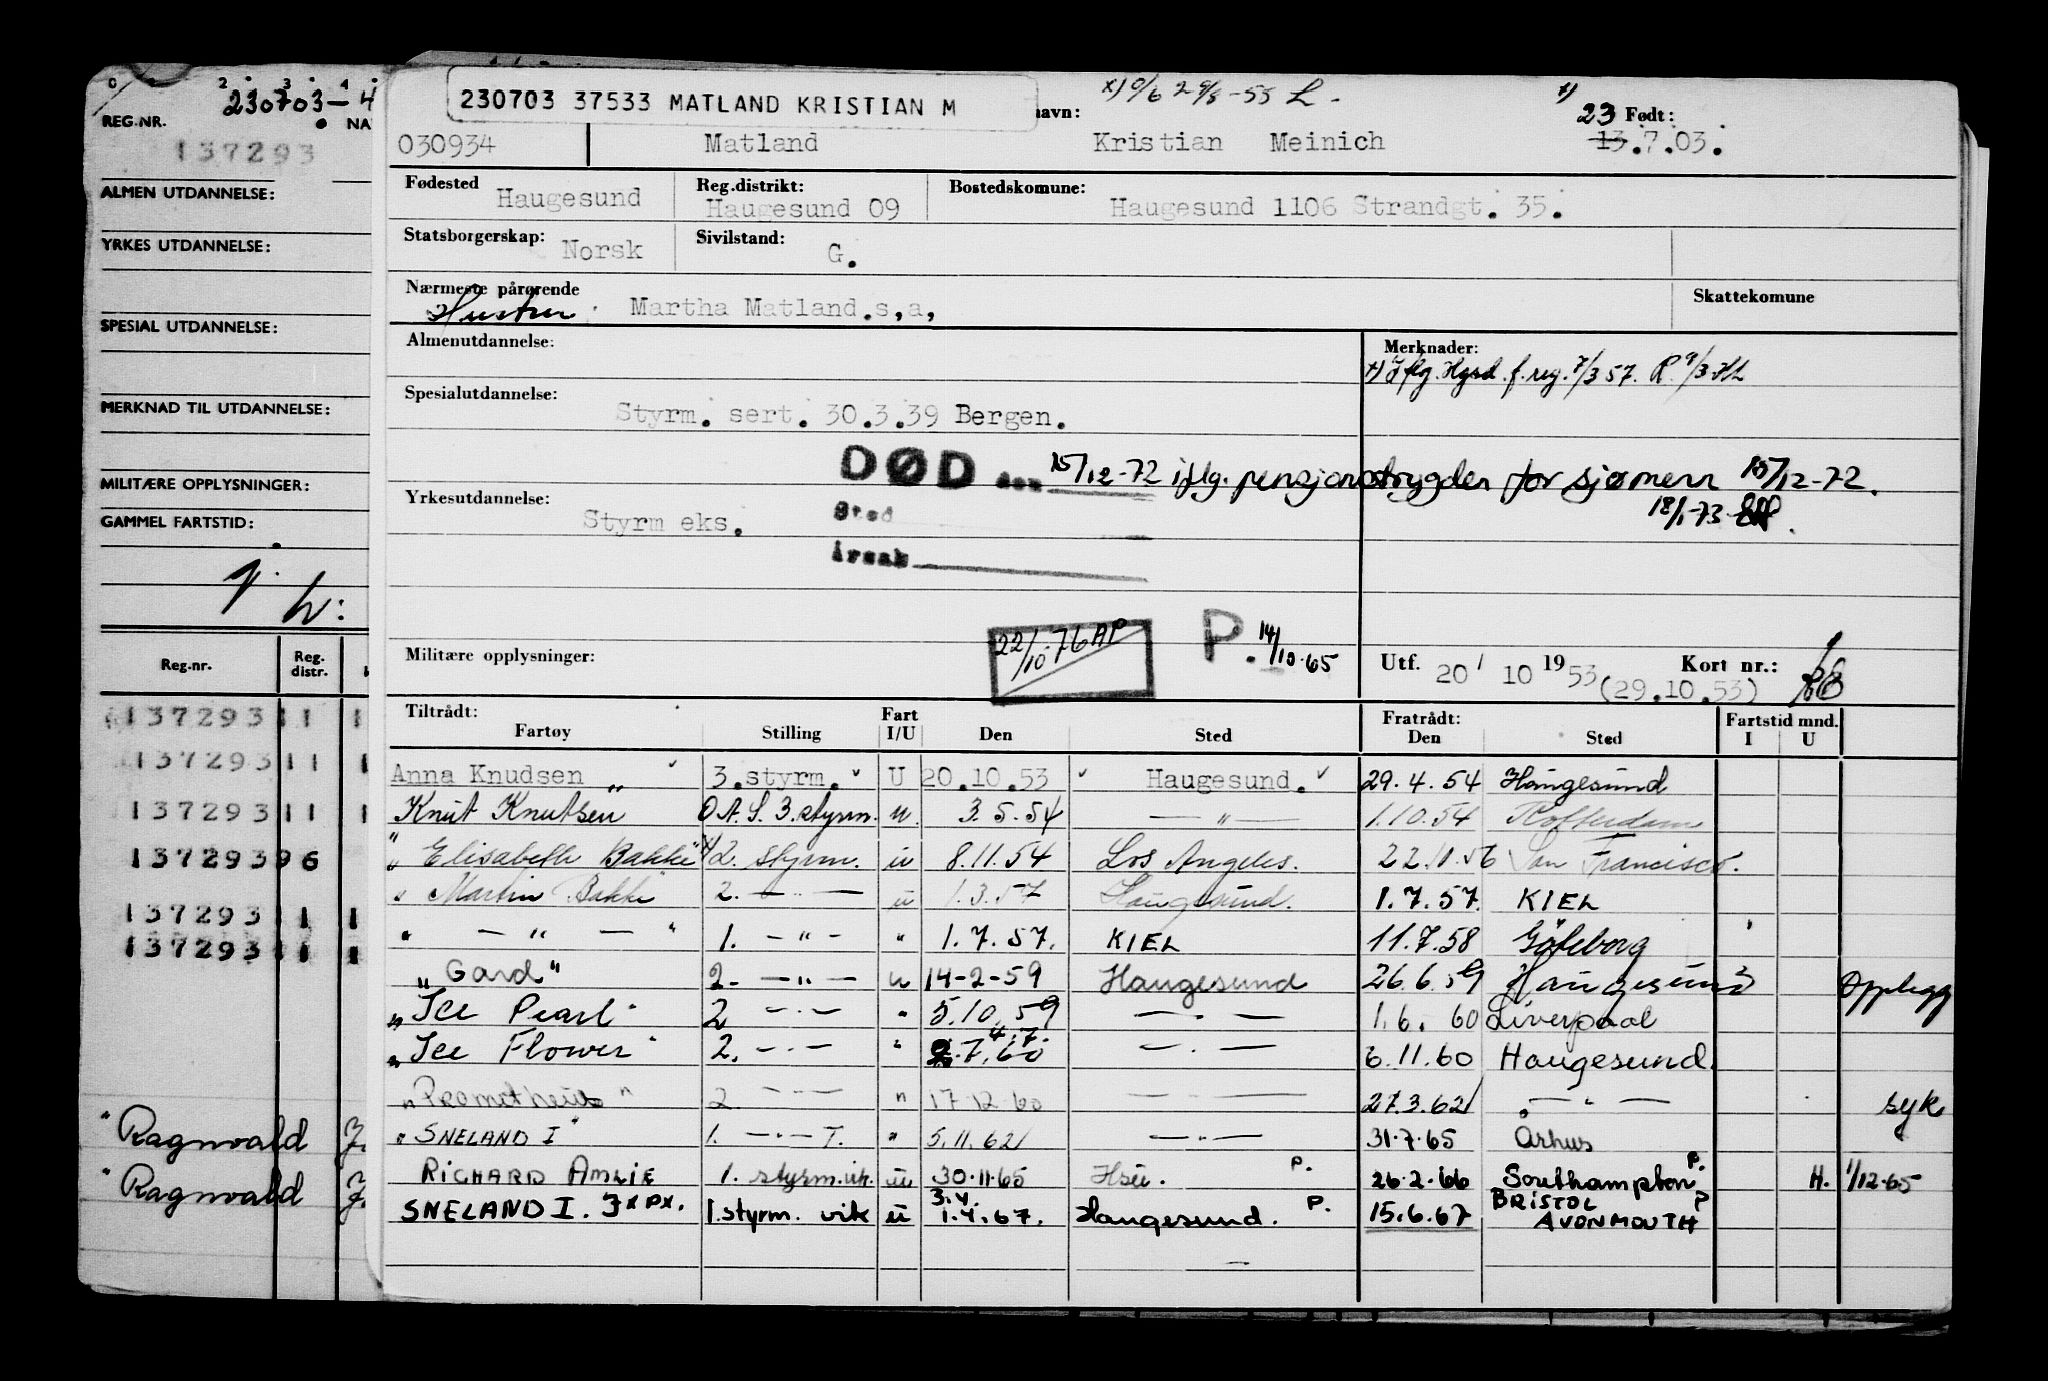 230703-4
REG.NR. NA
137293
ALMEN UTDANNELSE:
YRKES UTDANNELSE:
SPESIAL UTDANNELSE:
MERKNAD TIL UTDANNELSE:
MILITÆRE OPPLYSNINGER:
GAMMEL FARTSTID:
Reg.nr. Reg. distr.
137293 11 1
137293 11 1
137293 11 1
137293 96
137293 11 1
137293 11 1
" Ragnvald J.
" Ragnvald J.
230703 37533 MATLAND KRISTIAN M
navn: x) 9/6 29/8-55 L.
x) 23 Født:
030934 Matland Kristian Meinich 13.7.03.
Fødested Haugesund Reg.distrikt: Haugesund 09 Bostedskomune: Haugesund 1106 Strandgt. 35.
Statsborgerskap: Norsk Sivilstand: G.
Nærmeste pårørende Hustru Martha Matland.s,a, Skattekomune
Almenutdannelse: Merknader:
x) Iflg. Hgsd. f. reg. 7/3 57. R. 9/3
Spesialutdannelse: Styrm. sert. 30.3.39 Bergen.
DØD den 15/12-72 iflg. pensjonstrygden for sjømenn 15/12-72.
Yrkesutdannelse: Styrm eks. Sted 18/1-73
Årsak
22/10-76 AP P. 14/10-65
Militære opplysninger: Utf. 20/ 10 1953 (29.10.53) Kort nr.:
Tiltrådt: Fart Fratrådt: Fartstid mnd.
Fartøy Stilling I/U Den Sted Den Sted I U
Anna Knudsen " 3.styrm. U 20.10.53 Haugesund. 29.4.54 Haugesund
Knut Knutsen O.A.S. 3.styrm. u. 3.5.54 — " — 1.10.54 Rotterdam
" Elisabeth Bakke" x) 2. styrm. u 8.11.54 Los Angeles. 22.11.56 San Francisco.
" Martin Bakke 2. — " — u 1.3.57 Haugesund. 1.7.57. KIEL
" — " — " 1. — " — " 1.7.57. KIEL 11.7.58 Gøteborg
" Gard" 2. — " — u 14-2-59 Haugesund 26.6.59 Haugesund Opplegg
" Ice Pearl" 2 — " — " 5.10.59 — " — 1.6.60 Liverpool
4.7.
" Ice Flower" 2. — " — " 2.7.60 — " — 6.11.60 Haugesund
" Prometheus " 2 — " — " 17.12.60 — " — 27.3.62 — " — syk
" SNELAND I" 1. — " — T. " 5.11.62 — " — 31.7.65 Århus
RICHARD AMLIE 1. styrm.vik. u 30.11.65 Hsu. P. 26.2.66 Southampton P. H. 1/12-65
3.4.
SNELAND I. JxPx. 1.styrm. vik u 1.4.67. Haugesund. P. 15.6.67 BRISTOL P
AVONMOUTH